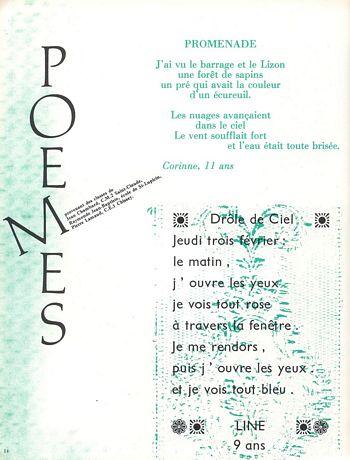 POEMES
provenant des classes de
Jean Chambard, C.M.2 Saint-Claude,
Raymonde Jean-Baptiste, école de St-Lupicin,
Pierre Lamaud, C.E.1 Chissey.
PROMENADE
J'ai vu le barrage et le Lizon
une forêt de sapins
un pré qui avait la couleur
d'un écureuil.
Les nuages avançaient
dans le ciel
Le vent soufflait fort
et l'eau était toute brisée.
Corinne, 11 ans
Drôle de Ciel
Jeudi trois février :
le matin ,
j ' ouvre les yeux
je vois tout rose
à travers la fenêtre .
Je me rendors ,
puis j ' ouvre les yeux .
et je vois tout bleu .
LINE
9 ans